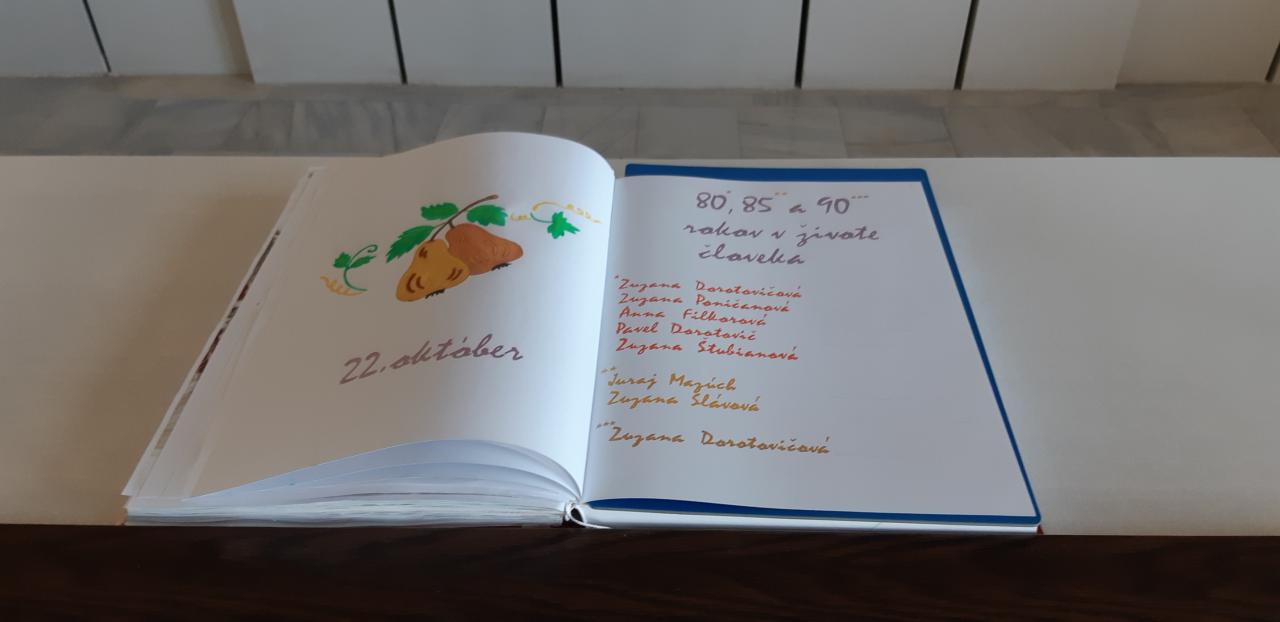 22. október
80*, 85** a 90***
rokov v živote
človeka
*Zuzana Dorotovičová
Zuzana Poničanová
Anna Filkorová
Pavel Dorotovič
Zuzana Štubianová
**Juraj Mazúch
Zuzana Slávová
***Zuzana Dorotovičová